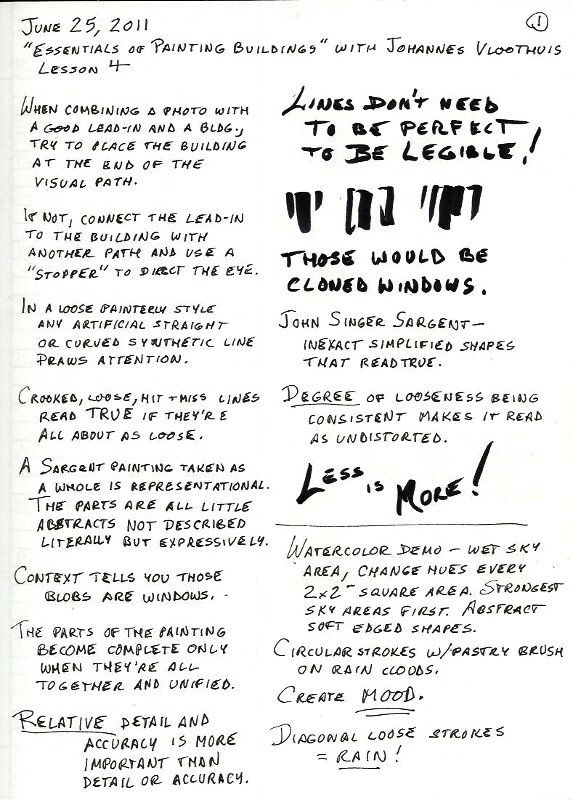 JUNE 25, 2011
1
"ESSENTIALS OF PAINTING BUILDINGS" WITH JOHANNES VLOOTHUIS
LESSON 4
WHEN COMBINING A PHOTO WITH
A GOOD LEAD-IN AND A BLDG.,
TRY TO PLACE THE BUILDING
AT THE END OF THE
VISUAL PATH.
IF NOT, CONNECT THE LEAD-IN
TO THE BUILDING WITH
ANOTHER PATH AND USE A
"STOPPER" TO DIRECT THE EYE.
IN A LOOSE PAINTERLY STYLE
ANY ARTIFICIAL STRAIGHT
OR CURVED SYNTHETIC LINE
DRAWS ATTENTION.
CROOKED, LOOSE, HIT + MISS LINES
READ TRUE IF THEY'RE
ALL ABOUT AS LOOSE.
A SARGENT PAINTING TAKEN AS
A WHOLE IS REPRESENTATIONAL.
THE PARTS ARE ALL LITTLE
ABSTRACTS NOT DESCRIBED
LITERALLY BUT EXPRESSIVELY.
CONTEXT TELLS YOU THOSE
BLOBS ARE WINDOWS.
THE PARTS OF THE PAINTING
BECOME COMPLETE ONLY
WHEN THEY'RE ALL
TOGETHER AND UNIFIED.
RELATIVE DETAIL AND
ACCURACY IS MORE
IMPORTANT THAN
DETAIL OR ACCURACY.
LINES DON'T NEED
TO BE PERFECT
TO BE LEGIBLE!
THOSE WOULD BE
CLONED WINDOWS.
JOHN SINGER SARGENT—
INEXACT SIMPLIFIED SHAPES
THAT READ TRUE.
DEGREE OF LOOSENESS BEING
CONSISTENT MAKES IT READ
AS UNDISTORTED.
LESS IS MORE!
WATERCOLOR DEMO – WET SKY
AREA, CHANGE HUES EVERY
2x2" SQUARE AREA. STRONGEST
SKY AREAS FIRST. ABSTRACT
SOFT EDGED SHAPES.
CIRCULAR STROKES W/PASTRY BRUSH
ON RAIN CLOUDS.
CREATE MOOD.
DIAGONAL LOOSE STROKES
= RAIN!